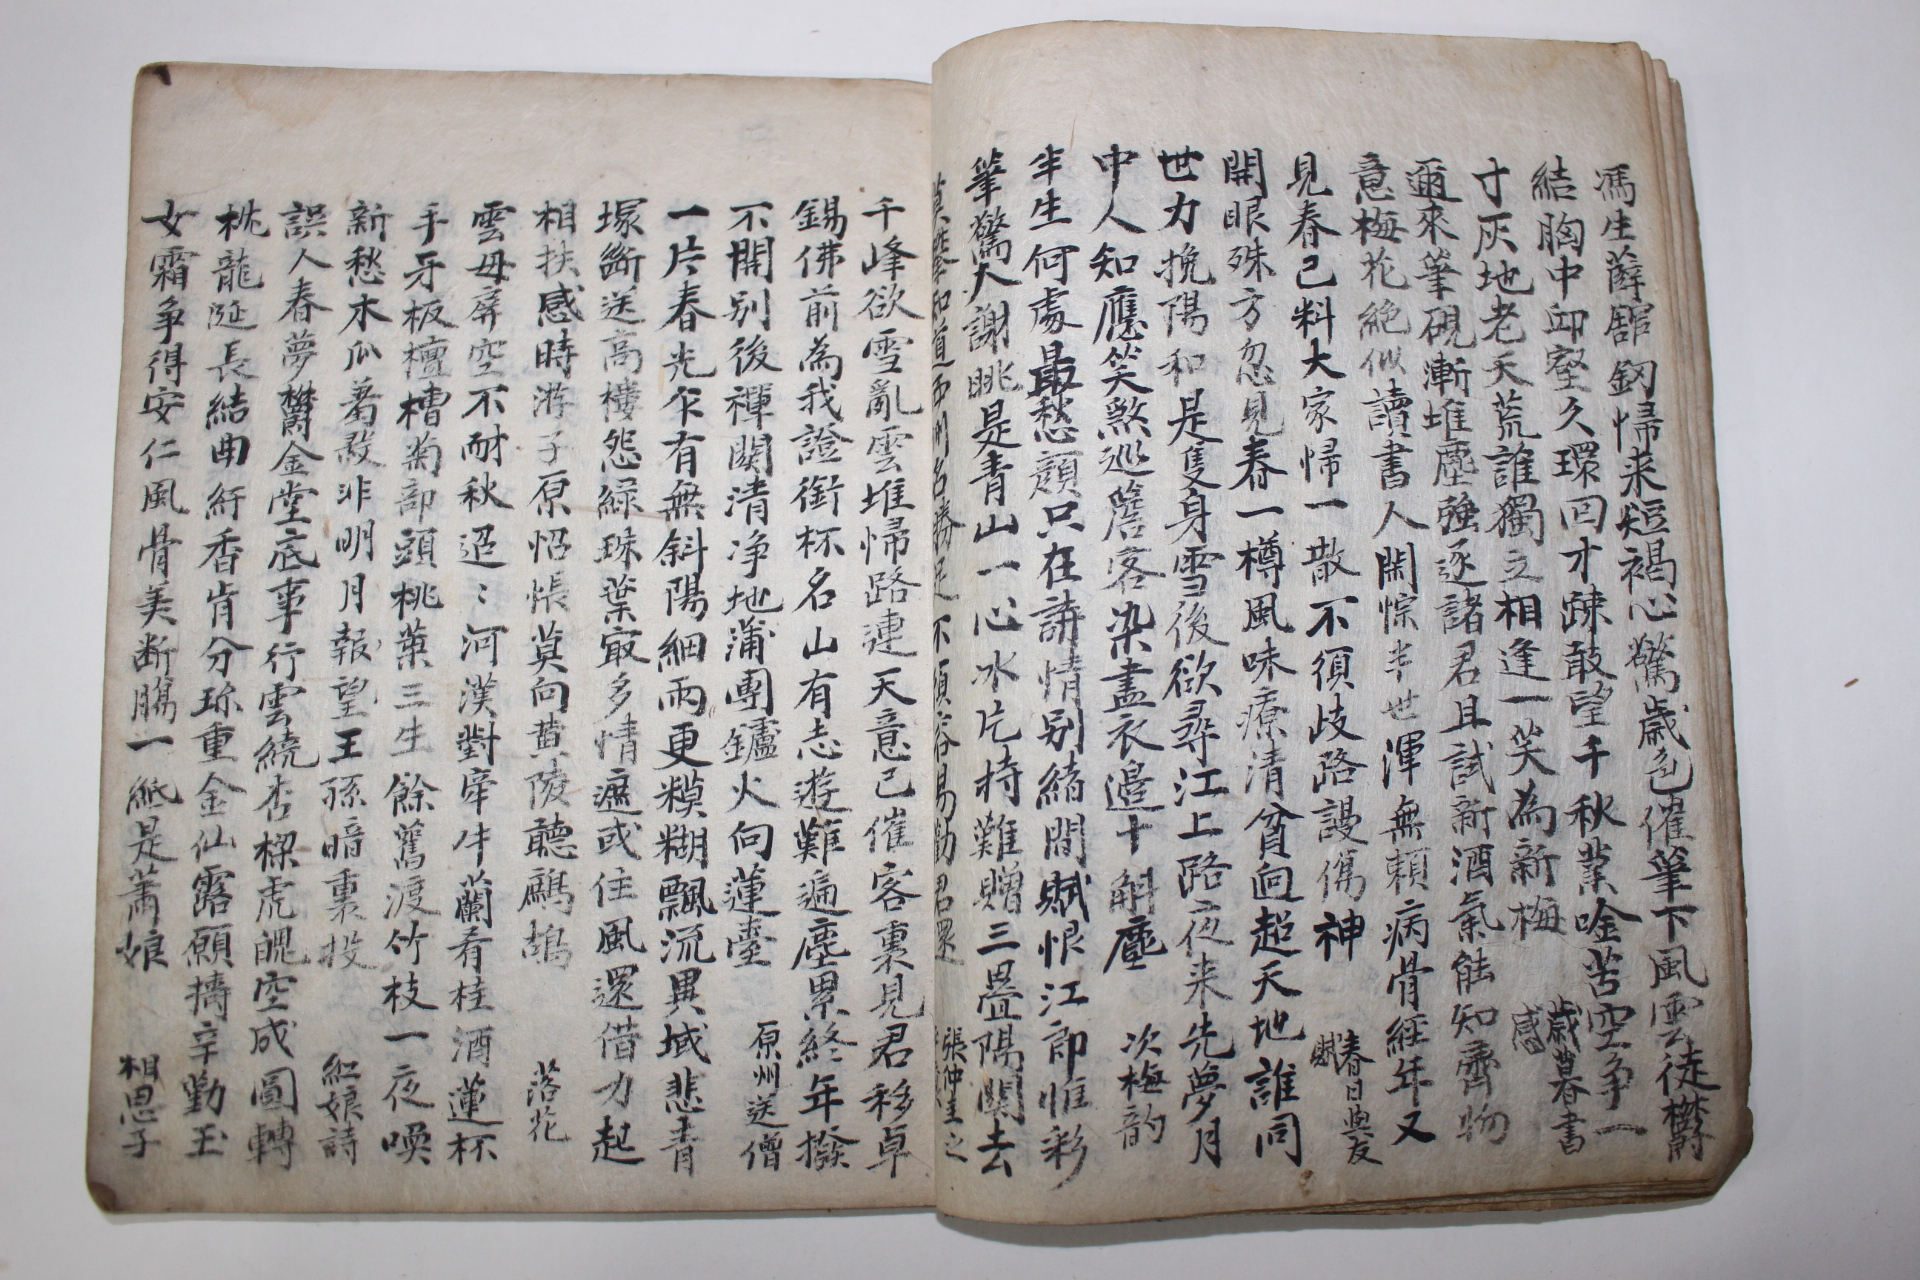 馮生薛舘鋏帰来短褐心驚歲色催筆下風雲徒欝
結胸中卭壑久環回才踈敢望千秋業唫苦空争一
寸灰地老天荒誰獨立相逢一笑為新梅 歲暮書感
邇來筆硯漸堆塵強逐諸君且試新酒氣能知齊物
意梅花絶似讀書人閑悰半世渾無頼病骨經年又
見春已料大家帰一散不須歧路謾傷神 春日與友賦
開眼殊方忽見春一樽風味療清貧逈超天地誰同
世力挽陽和是隻身雪後欲尋江上路夜来先夢月
中人知應笑煞巡簷客染盡衣邉十斛塵 次梅韵
半生何處最愁顔只在詩情别緒間賦恨江郎惟彩
筆驚人謝眺是青山一心氷片持難贈三疊陽關去
莫 知道西 名勝足不須容易勸君還 張仲
千峰欲雪亂雲堆帰路連天意已催客裏見君移卓
錫佛前為我證銜杯名山有志遊難遍塵累終年撥
不開别後禪關清净地蒲團鑪火向蓮臺 原州送僧
一片春光乍有無斜陽細雨更糢糊飄流異域悲青
塚斷送高樓怨緑珠葉㝡多情遮或住風還借力起
相扶感時游子原怊悵莫向黄陵聽鷓鴣 落花
雲母屏空不耐秋迢〻河漢對牽牛蘭肴桂酒蓮杯
手牙板檀槽菊部頭桃葉三生餘舊渡竹枝一夜喚
新愁木瓜蓍 非明月報望王孫暗裏投 紅娘詩
誤人春夢欝金堂底事行雲繞杏樑虎魄空成圓轉
枕龍涎長結曲紆香肯分珎重金仙露願擣辛勤玉
女霜争得安仁風骨美断腸一紙是蕭娘 相思子